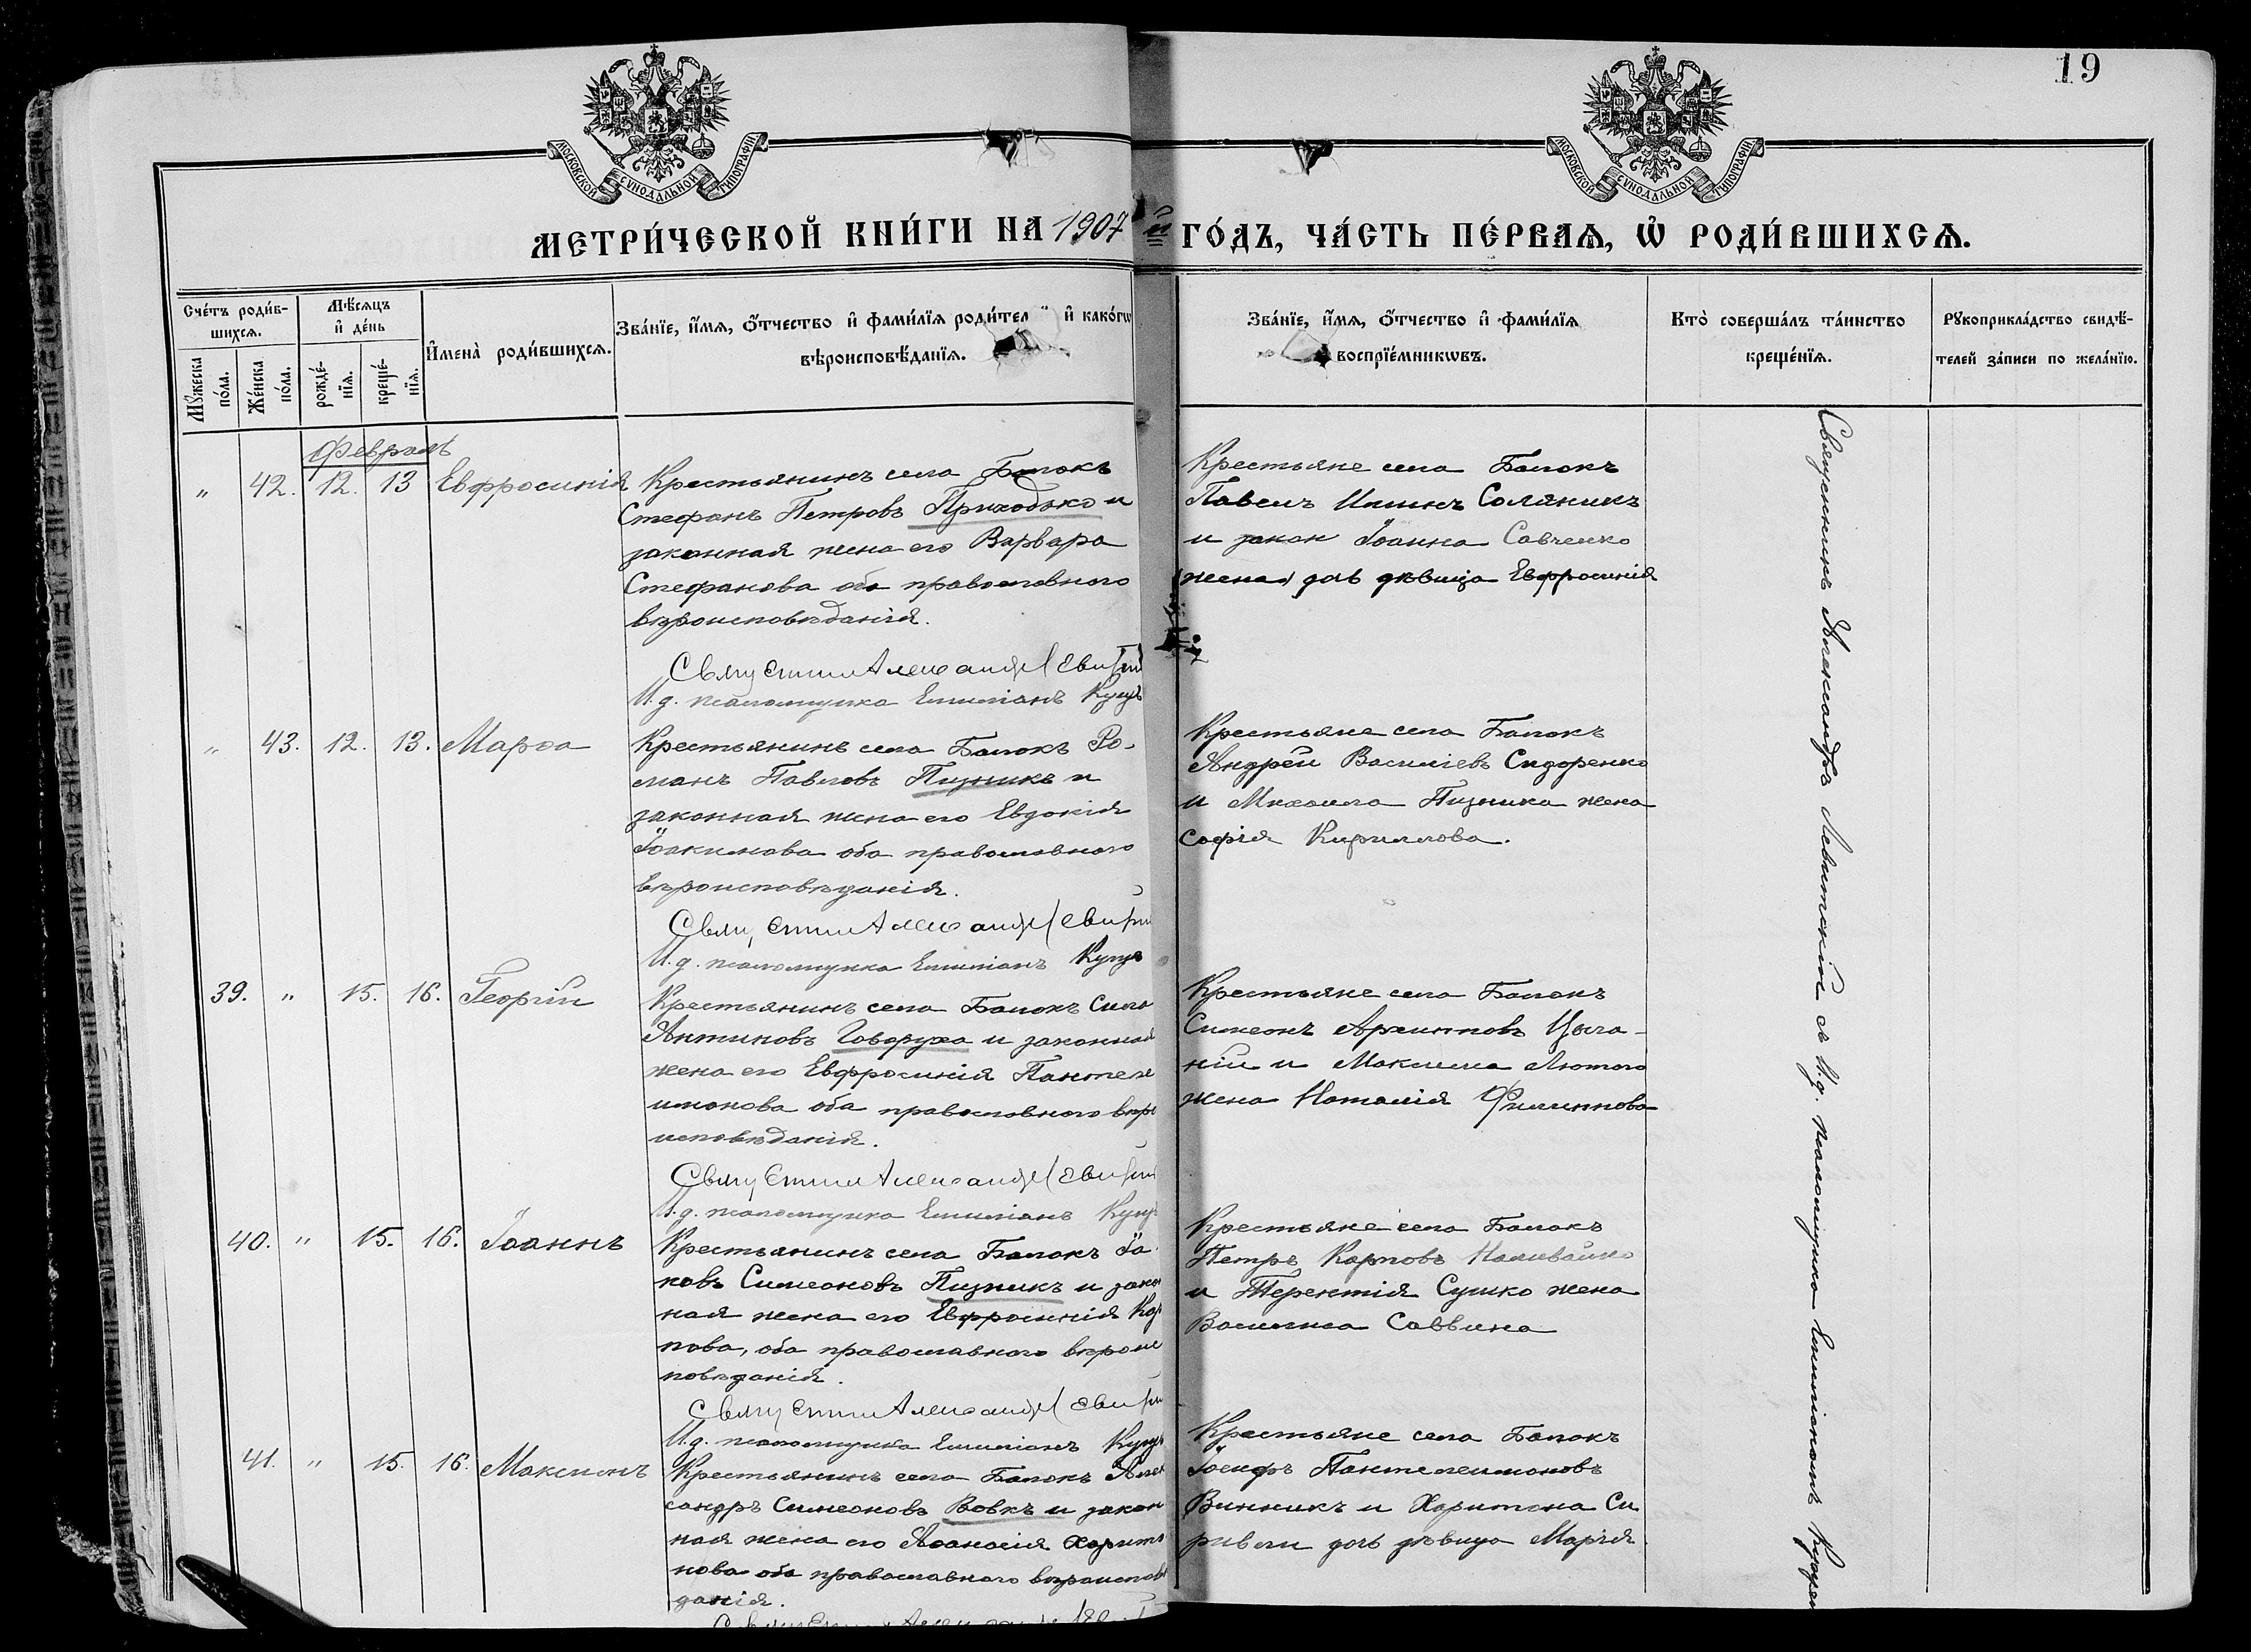 19
МОСКОВСКОЙ СУНОДАЛЬНОЙ ТИПОГРАФІИ
МОСКОВСКОЙ СУНОДАЛЬНОЙ ТИПОГРАФІИ
МЕТРИ́ЧЕСКОЙ КНИ́ГИ НА 1907 й ГО́ДЪ, ЧА́СТЬ ПЕ́РВАѦ, Ѡ҆ РОДИ́ВШИХСѦ.
Сче́тъ роди́в-
шихсѧ.
Мꙋ́жеска
по́ла.
Же́нска
по́ла.
Мѣ́сѧцъ
и҆ де́нь
рожде́-
нїѧ.
креще́-
нїѧ.
И҆мена̀ роди́вшихсѧ.
Зва́нїе, и҆́мѧ, ѻ҆́тчество и҆ фами́лїѧ роди́тел и҆ како́гѡ
вѣроисповѣ́данїѧ.
Зва́нїе, и҆́мѧ, ѻ҆́тчество и҆ фами́лїѧ
воспрїе́мникѡвъ.
Кто̀ соверша́лъ та́инство
креще́нїѧ.
Рꙋкоприкла́дство свидѣ́-
телей за́писи по жела́нїю.
Февраль
" 42. 12. 13 Евфросинія
Крестьянинъ села Балокъ
Стефанъ Петровъ Приходько и
законная жена его Варвара
Стефанова оба православного
вѣроисповѣданія.
Священникъ Александр Левитск
И.д. псаломщика Емиліанъ Куцъ
Крестьяне села Балокъ
Павелъ Соляникъ
и закон Іоанна Савченко
(жена) дочь дѣвица Евфросинія
" 43. 12. 13. Марѳа
Крестьянинъ села Балокъ Ро-
манъ Павловъ Пизникъ и
законная жена его Евдокія
Іоакимова оба православного
вѣроисповѣданія.
Священникъ Александр Левитск
И.д. псаломщика Емиліанъ Куцъ
Крестьяне села Балокъ
Андрей Василіевъ Сидоренко
и Михаила Пизника жена
Софія Кириллова.
39. " 15. 16. Георгій
Крестьянинъ села Балокъ
Антиповъ Говоруха и законная
жена его Евфросинія Пантеле
имонова оба православного вѣро
исповѣданія.
Священникъ Александр Левитск
И.д. псаломщика Емиліанъ Куцъ
Крестьяне села Балокъ
Симеонъ Архиповъ Цыга-
ній и Максима Лютого
жена Наталія Филиппова
40. " 15. 16. Іоаннъ
Крестьянинъ села Балокъ Іа
ковъ Симеоновъ Пизникъ и закон
ная жена его Евфросинія Кар
пова, оба православного вѣроис
повѣданія.
Священникъ Александр Левитск
И.д. псаломщика Емиліанъ Куцъ
Крестьяне села Балокъ
Петръ Карповъ Наливайко
и Терентія Сушко жена
Василиса Саввина
41. " 15. 16. Максимъ
Крестьянинъ села Балокъ Алек
сандръ Симеоновъ Вовкъ и закон
ная жена его Аѳанасія Харито
нова оба православного вѣроисповѣ
данія.
Крестьяне села Балокъ
Іосифъ Пантелеимоновъ
Винникъ и Харитона Си
ривли дочь дѣвица Марія.
Священникъ Александръ Левитскій съ И.д. псаломщика Емиліаномъ